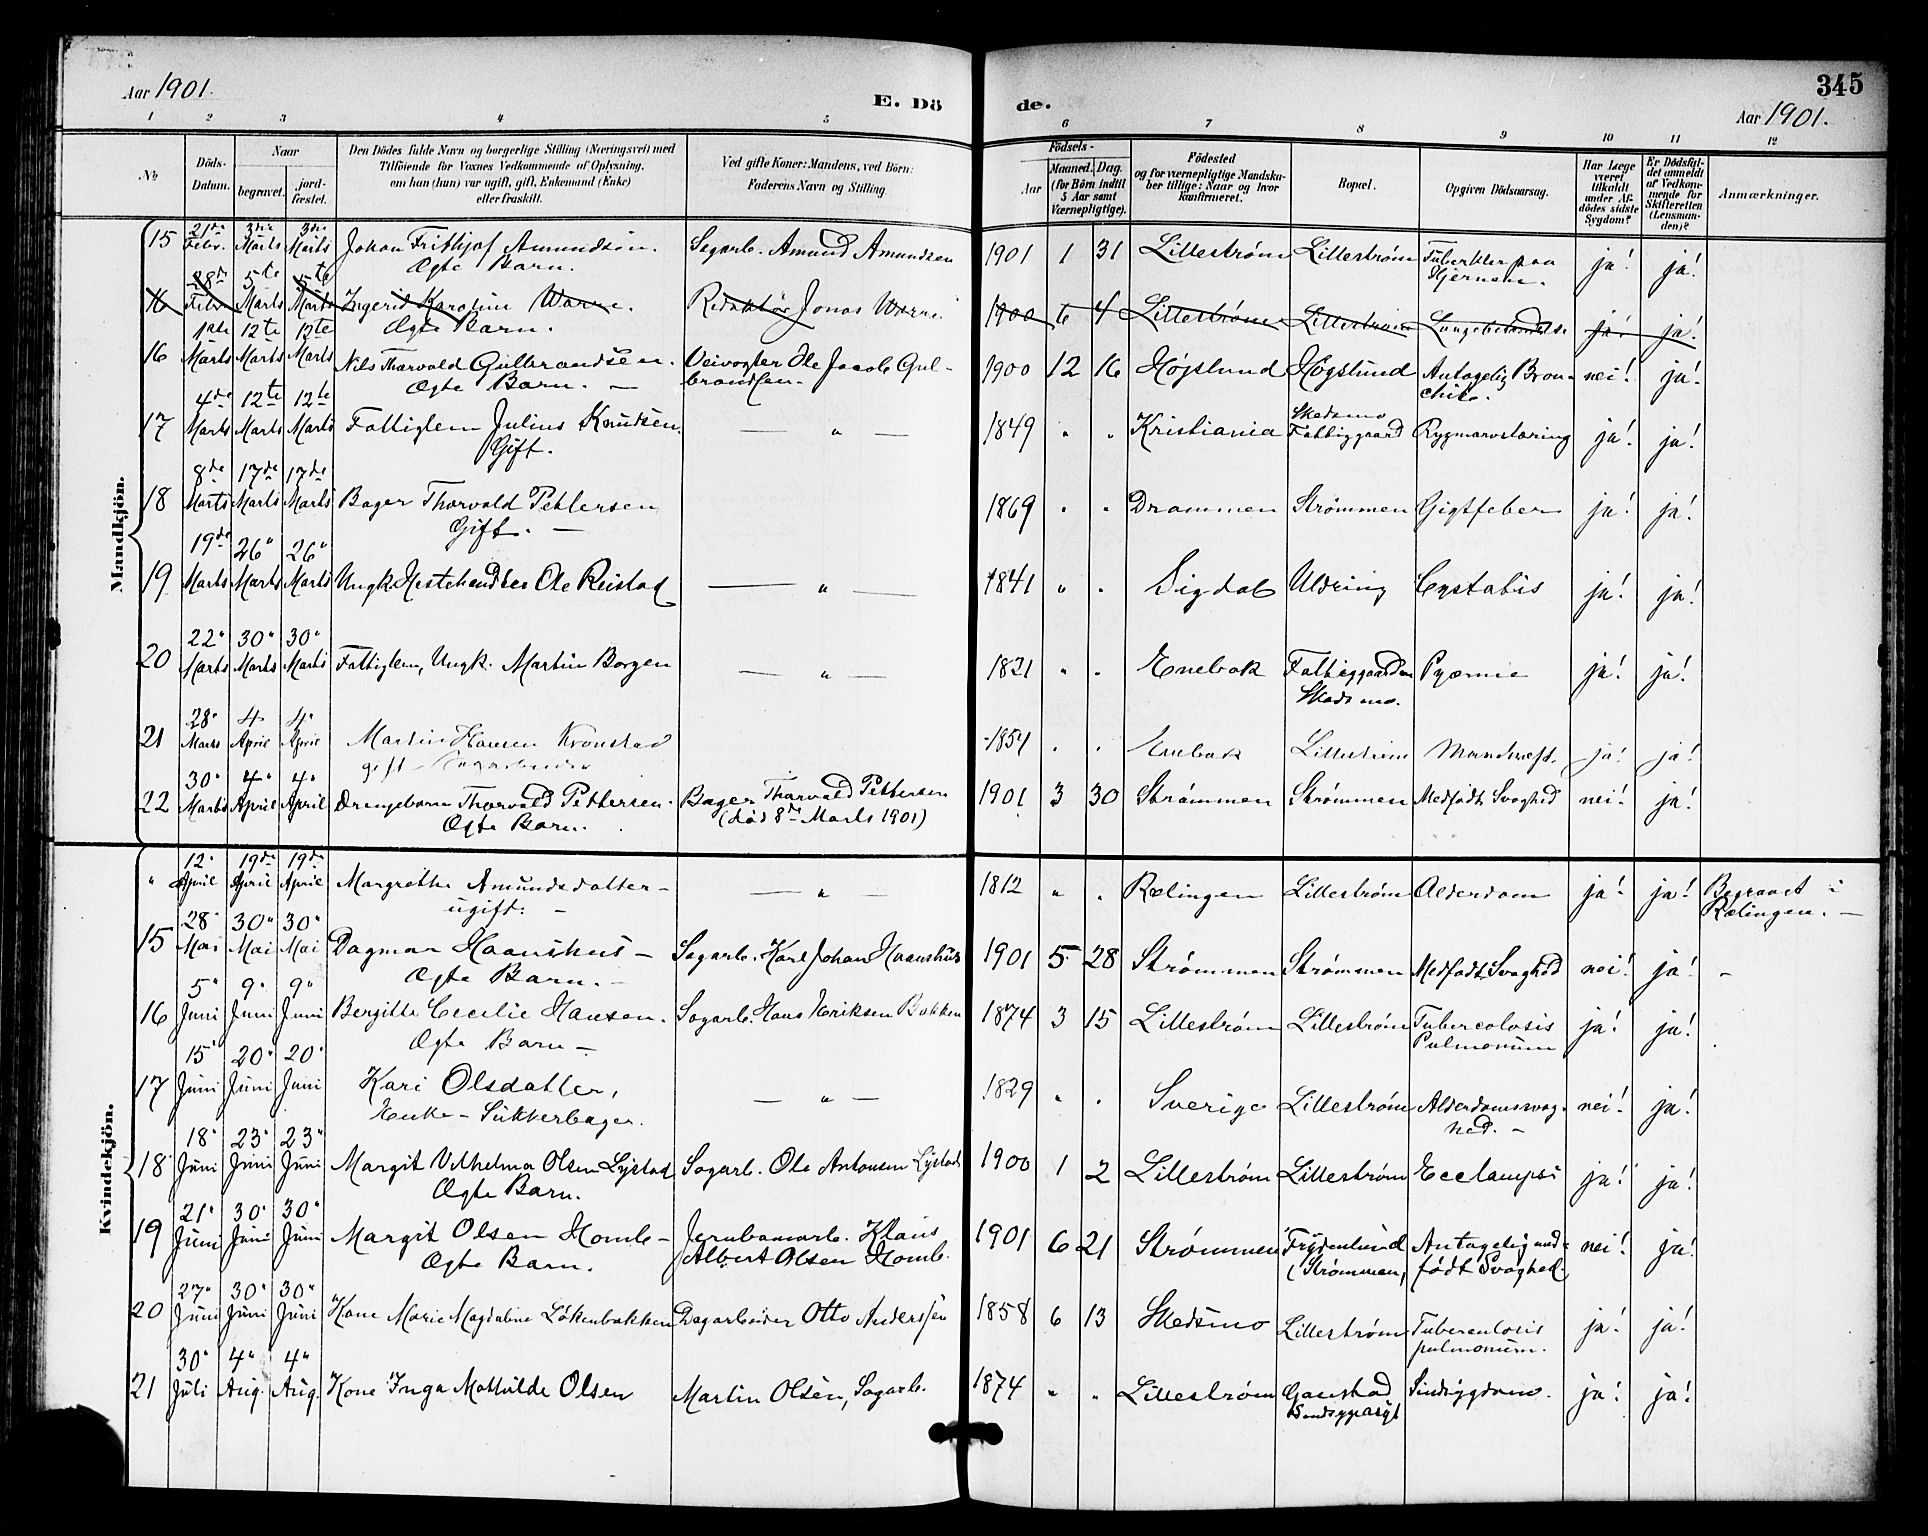 345
Aar 1901.
E. Dö
de.
Aar 1901.
1 2 3 4 5 6 7 8 9 10 11 12
№
Döds-
Datum.
Naar
begravet.
jord-
fæstet.
Den Dödes fulde Navn og borgerlige Stilling (Næringsvei) med
Tilföiende for Voxnes Vedkommende af Oplysning,
om han (hun) var ugift, gift, Enkemand (Enke)
eller fraskilt.
Ved gifte Koner: Mandens, ved Börn:
Faderens Navn og Stilling
Födsels-
Aar
Maaned. Dag.
(for Börn indtil
5 Aar samt
Værnepligtige).
Födested
og for værnepligtige Mandska-
ber tillige: Naar og hvor
konfirmeret.
Bopæl.
Opgiven Dödsaarsag.
Har Læge
været
tilkaldt
under Af-
dödes sidste
Sygdom?
Er Dödsfal-
det anmeldt
af Vedkom-
mende for
Skifteretten
(Lensman-
den)?
Anmærkninger.
Mandkjön.
15 21de Febr. 3die Marts 3die Marts Johan Frithjof Amundsen. Sagarb. Amund Amundsen 1901 1 31 Lillestrøm Lillestrøm Tuberkler paa ja! ja!
Ægte Barn. Hjernen.
16 28de Febr. 5te Marts 5te Marts Ingerid Karoline Warre. Redaktør Jonas Warre 1900 6 4 Lillestrøm Lillestrøm ja! ja!
Ægte Barn.
16 1ste Marts 12te Marts 12te Marts Nils Thorvald Gulbrandsen. Veivogter Ole Jacob Gul- 1900 12 16 Højslund Høgslund Antagelig Bron- nei! ja!
Ægte Barn. — brandsen. chit.
17 4de Marts 12te Marts 12te Marts Fattiglem Julius Knudsen. — " — 1849 " " Kristiania Skedsmo Fattiggaard Rygmarvstæring ja! ja!
Gift.
18 8de Marts 17de Marts 17de Marts Bager Thorvald Pettersen 1869 " " Drammen Strømmen Gigtfeber ja! ja!
Gift. —
19 19de Marts 26" Marts 26" Marts Ungk. Hestehandler Ole Reistad — " — 1841 " " Sigdal Uldring Cystatis ja! ja!
20 22" Marts 30" Marts 30" Marts Fattiglem, Ungk. Martin Borgen — " — 1821 " " Enebak Fattiggaarden Pyæmie ja! ja!
Skedsmo.
21 28" Marts 4" April 4" April Martin Hansen Kronstad 1854 " " Enebak Lillestrøm ja! ja!
gift Sagarbeider
22 30" Marts 4" April 4" April Drengebarn Thorvald Pettersen. Bager Thorvald Pettersen 1901 3 30 Strømmen Strømmen Medfødt Svaghed nei! ja!
Ægte Barn. (død 8de Marts 1901)
Kvindekjön.
" 12" April 19de April 19de April Margrethe Amundsdatter — — " — 1812 " " Rælingen Lillestrøm Alderdom ja! ja! Begravet i
ugift. — Rælingen. —
15 28" Mai 30" Mai 30" Mai Dagmar Haanshus — Sagarb. Karl Johan Haanshus 1901 5 28 Strømmen Strømmen Medfødt Svaghed nei! ja! —
Ægte Barn. —
16 5" Juni 9" Juni 9" Juni Bergitte Cecilie Hansen. Sagarb. Hans Eriksen Bakken 1874 3 15 Lillestrøm Lillestrøm Tubercolosis ja! ja!
Ægte Barn — Pulmonum
17 15" Juni 20" Juni 20" Juni Kari Olsdatter, — " — 1829 " " Sverige Lillestrøm Alderdomssvag- nei! ja!
Enke — Sukkerbager. hed. —
18 18" Juni 23" Juni 23" Juni Margit Vilhelma Olsen Lystad Sagarb. Ole Antonsen Lystad 1900 1 2 Lillestrøm Lillestrøm Ecclampsi ja! ja!
Ægte Barn.
19 21" Juni 30" Juni 30" Juni Margit Olsen Homle — Jernbanearb. Klaus 1901 6 21 Strømmen Frydenlund Antagelig med- nei! ja!
Ægte Barn. Albert Olsen Homle. (Strømmen) født Svaghed.
20 27" Juni 30" Juni 30" Juni Kone Marie Magdaline Løkenbakken Dagarbeider Otto Anderssen 1858 6 13 Skedsmo Lillestrøm Tuberculosis ja! ja!
pulmonum.
21 30" Juli 4" Aug. 4" Aug. Kone Inga Mathilde Olsen Martin Olsen, Sagarb. 1874 " " Lillestrøm Gaustad Sindsygdom. ja! ja!
Sindsygeasyl